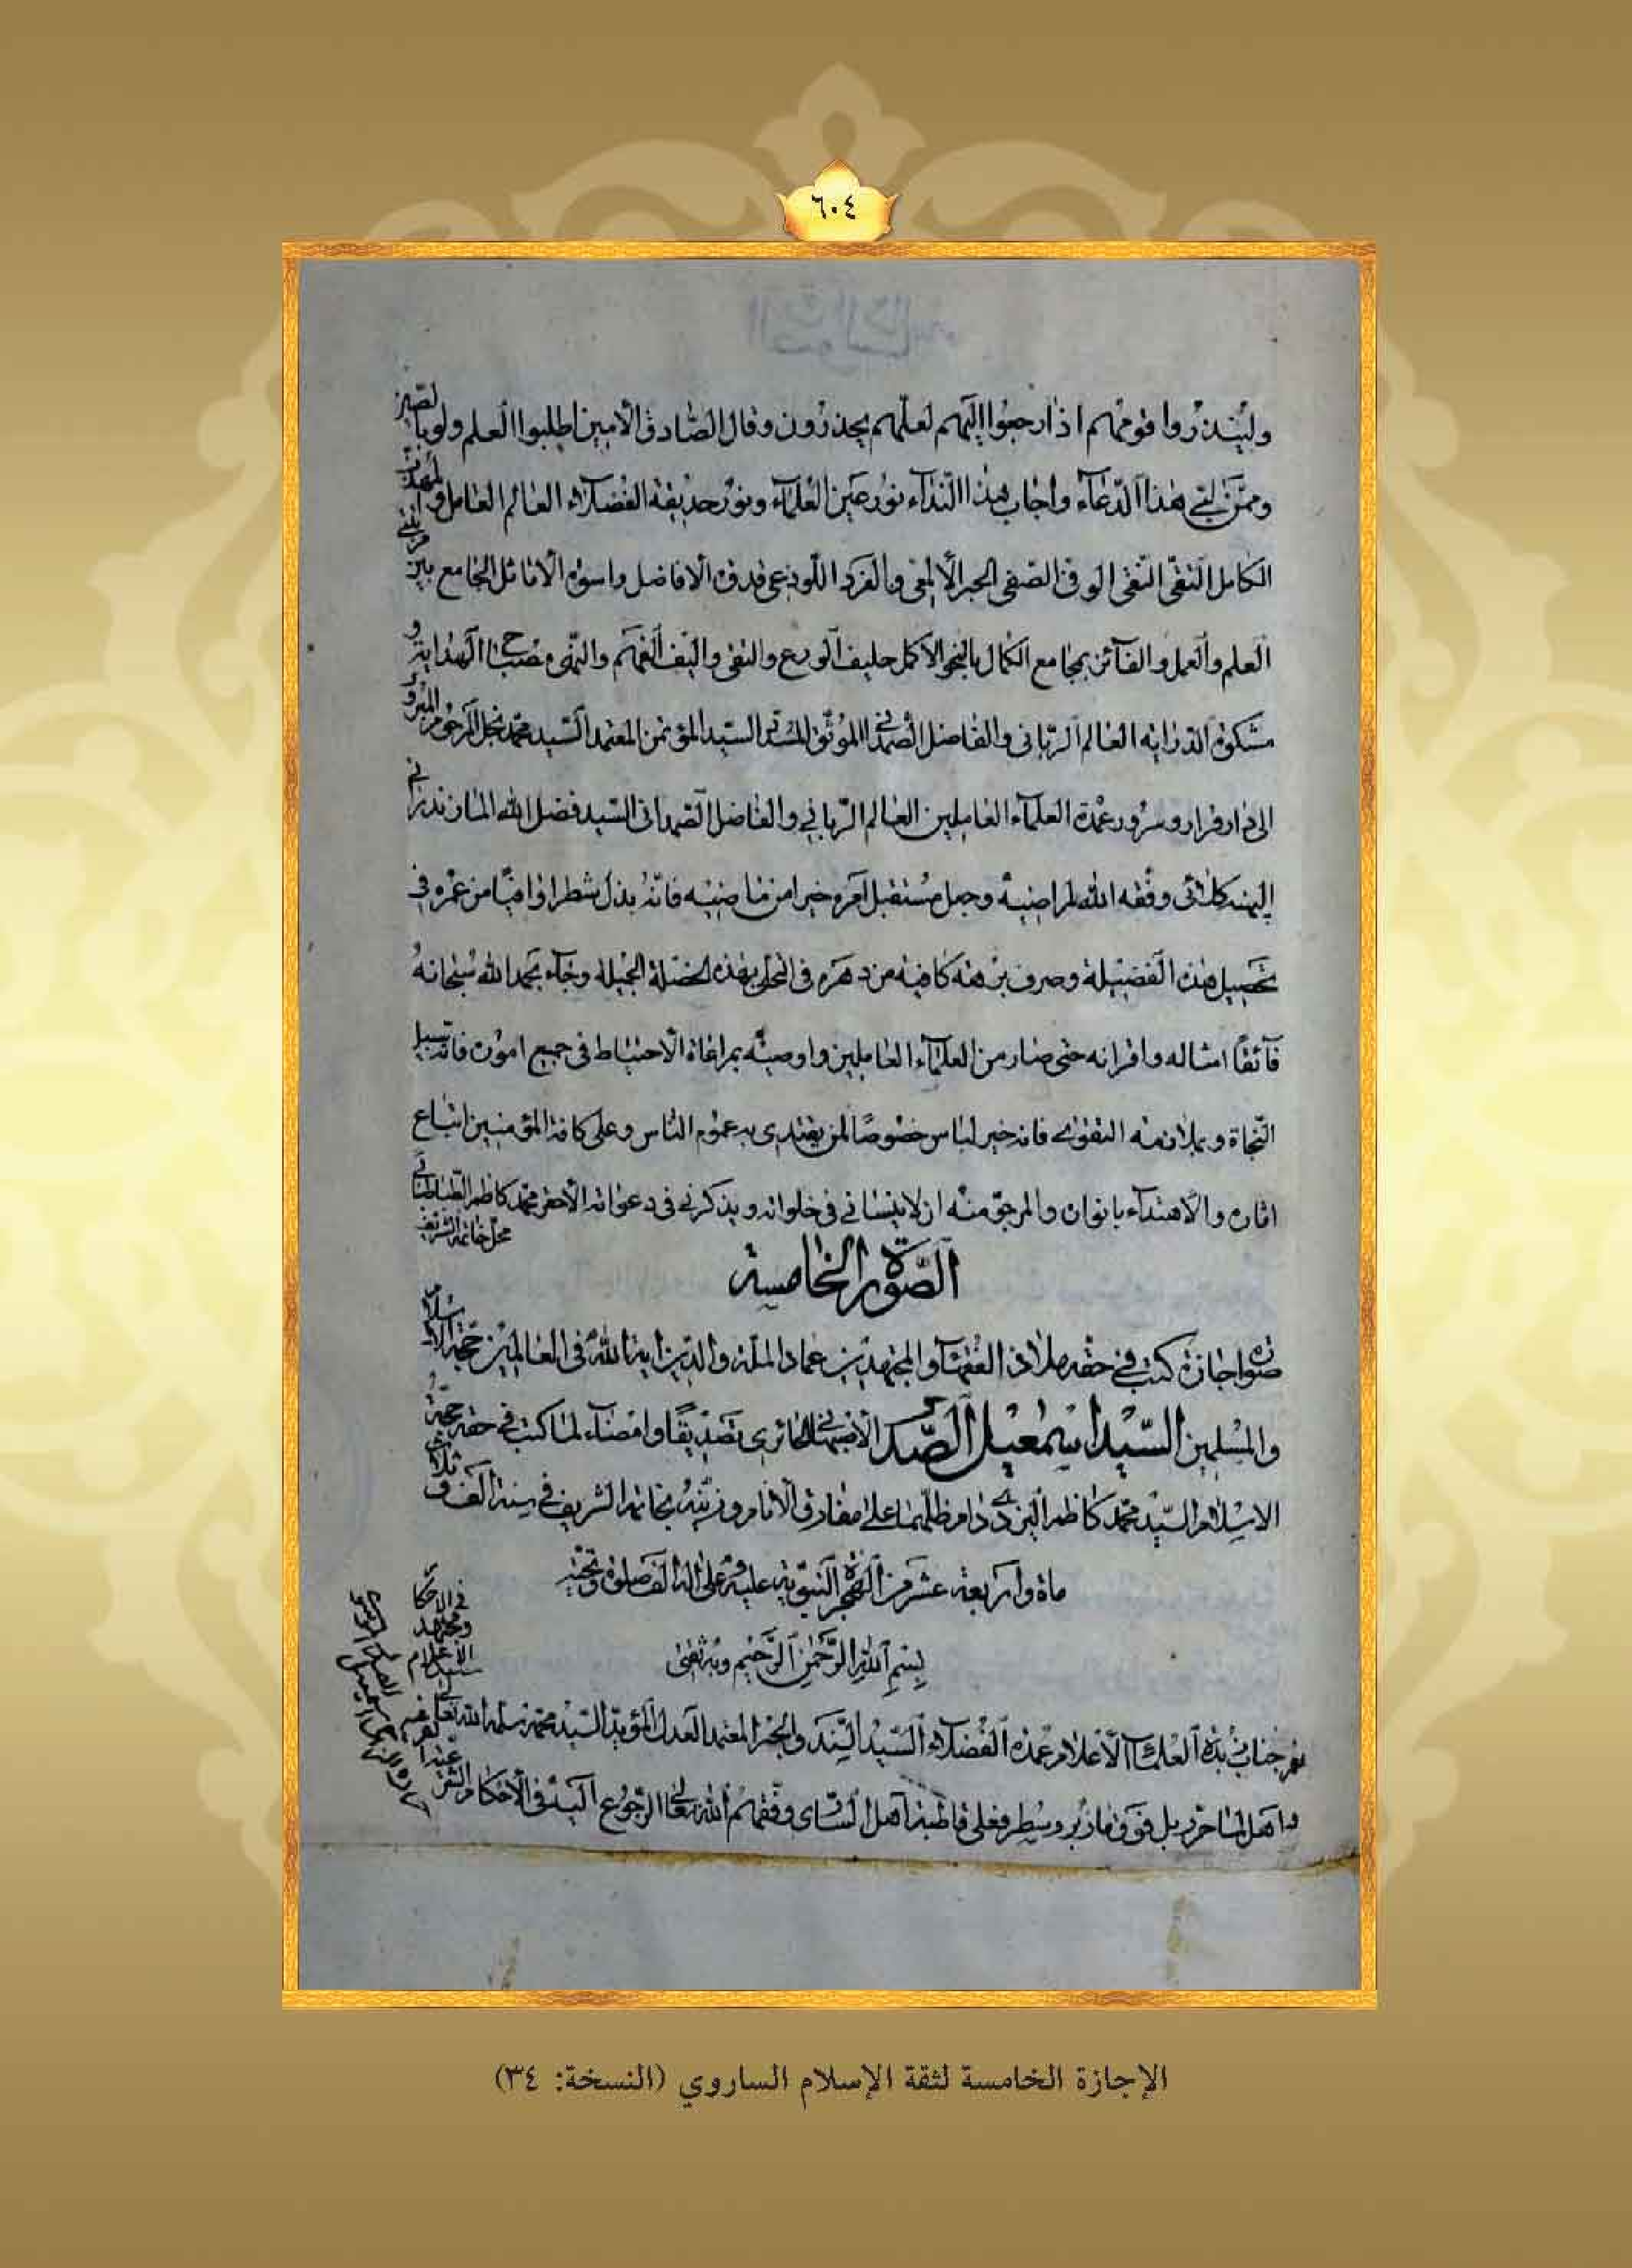 ٦٠٤
ولينذروا قومهم اذا رجعوا اليهم لعلهم يحذرون وقال الصادق الامين اطلبوا العلم ولو بالصين
وممن لبى هذا الدعاء واجاب هذا النداء نور عين العلماء ونور حديقة الفضلاء العالم العامل و
الكامل التقي النقي الوفي الصفي الحبر الالمعي والفرد اللوذعي قدوة الافاضل واسوة الاماثل الجامع بين
العلم والعمل والفائز بمجامع الكمال بالنحو الاكمل حليف الورع والتقى واليف الفهم والنهى مصباح الهداية و
مشكوة الدراية العالم الرباني والفاضل الصمداني الموثق المسدد السيد المؤتمن المعتمد السيد محمد نجل المرحوم المبرور
الى دار قرار وسرور عمدة العلماء العاملين العالم الرباني والفاضل الصمداني السيد فضل الله المازندراني
البهنه كلائى وفقه الله لمراضيه وجعل مستقبل امره خيرا من ماضيه فانه بذل شطرا وافيا من عمره في
تحصيل هذه الفضيلة وصرف برهة كافية من دهره في التحلي بهذه الخصلة الجميلة وجاء بحمد الله سبحانه
فآئقا امثاله واقرانه حتى صار من العلماء العاملين واوصيه بمراعاة الاحتياط في جميع اموره فانه سبيل
النجاة وبملازمة التقوى فانه خير لباس خصوصا لمن يقتدي به عموم الناس وعلى كافة المؤمنين اتباع
اثاره والاهتداء بانواره والمرجو منه ان لا ينساني في خلواته ويذكرني في دعواته الاحقر محمد كاظم الطباطبائي
محل خاتمه الشريف
الصورة الخامسة
صورة اجازة كتب في حقه ملاذ الفقهاء والمجتهدين عماد الملة والدين اية الله في العالمين حجة الاسلام
والمسلمين السيد اسمعيل الصدر الاصبهاني الحائري تصديقا وامضاء لما كتب في حقه حجة
الاسلام السيد محمد كاظم اليزدي دام ظلهما على مفارق الانام وزينه بخاتمه الشريف في سنة الف وثلاث
مأة واربعة عشر من الهجرة النبوية عليه وعلى اله الف صلوة وتحية
بسم الله الرحمن الرحيم وبه ثقتي
نعم جناب زبدة العلماء الاعلام عمدة الفضلاء السيد السند والحبر المعتمد العدل المؤيد السيد محمد سلمه الله تعالى
اهل لما حرر بل فوق ما زبر وسطر فعلى قاطبة اهل الساري وفقهم الله تعالى الرجوع اليه في الاحكام
في الاحكام
ومجتهد
الإجازة الخامسة لثقة الإسلام الساروي (النسخة: ٣٤)